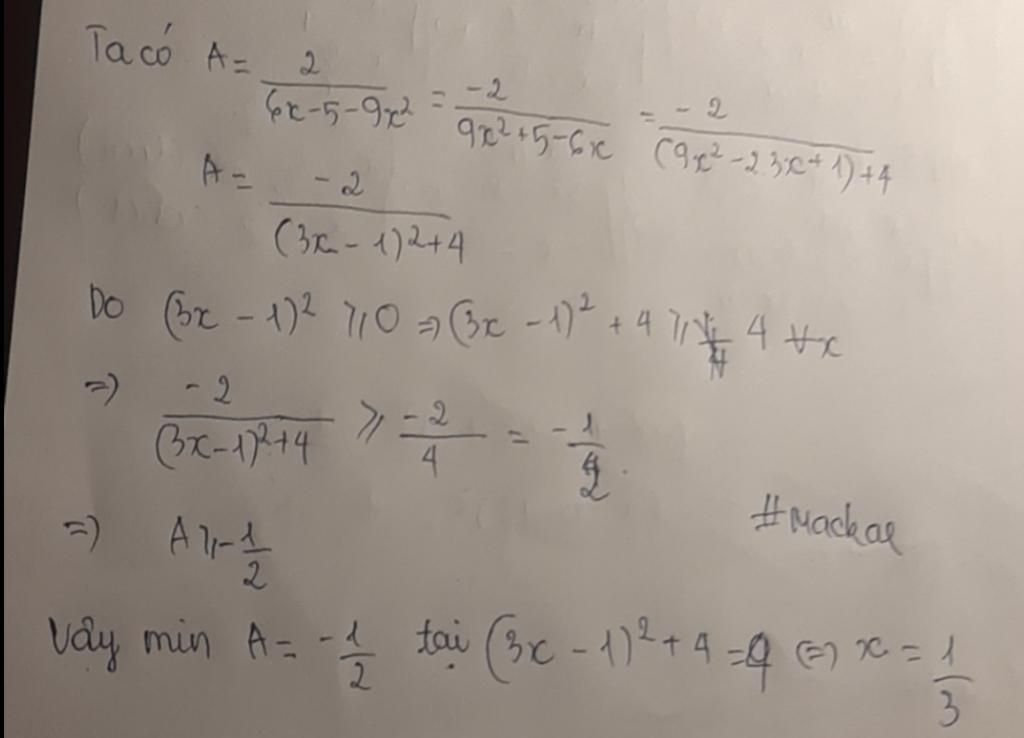 Ta có A = 2/(6x-5-9x²) = -2/(9x²+5-6x) = -2/((9x²-2.3x+1)+4)
A = -2/((3x-1)²+4)
Do (3x-1)² ⩾ 0 ⇒ (3x-1)² + 4 ⩾ 4 ∀x
⇒ -2/((3x-1)²+4) ⩾ -2/4 = -1/2.
⇒ A ⩾ -1/2
#Mackae
Vậy min A = -1/2 tại (3x-1)² + 4 = 4 ⇔ x = 1/3